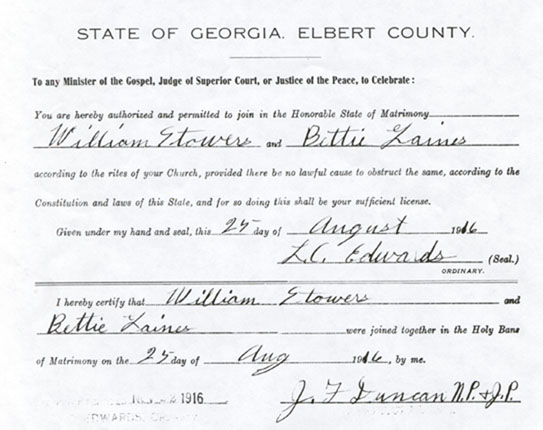 STATE OF GEORGIA. ELBERT COUNTY.
To any Minister of the Gospel, Judge of Superior Court, or Justice of the Peace, to Celebrate:
You are hereby authorized and permitted to join in the Honorable State of Matrimony
William Stowers and Bettie Gaines
according to the rites of your Church, provided there be no lawful cause to obstruct the same, according to the
Constitution and laws of this State, and for so doing this shall be your sufficient license.
Given under my hand and seal, this 25 day of August 1916
L.C. Edwards (Seal.)
ORDINARY.
I hereby certify that William Stowers and
Bettie Gaines were joined together in the Holy Bans
of Matrimony on the 25 day of Aug 1916, by me.
2 1916
EDWARDS,
J. F Duncan N.P. & J.P.